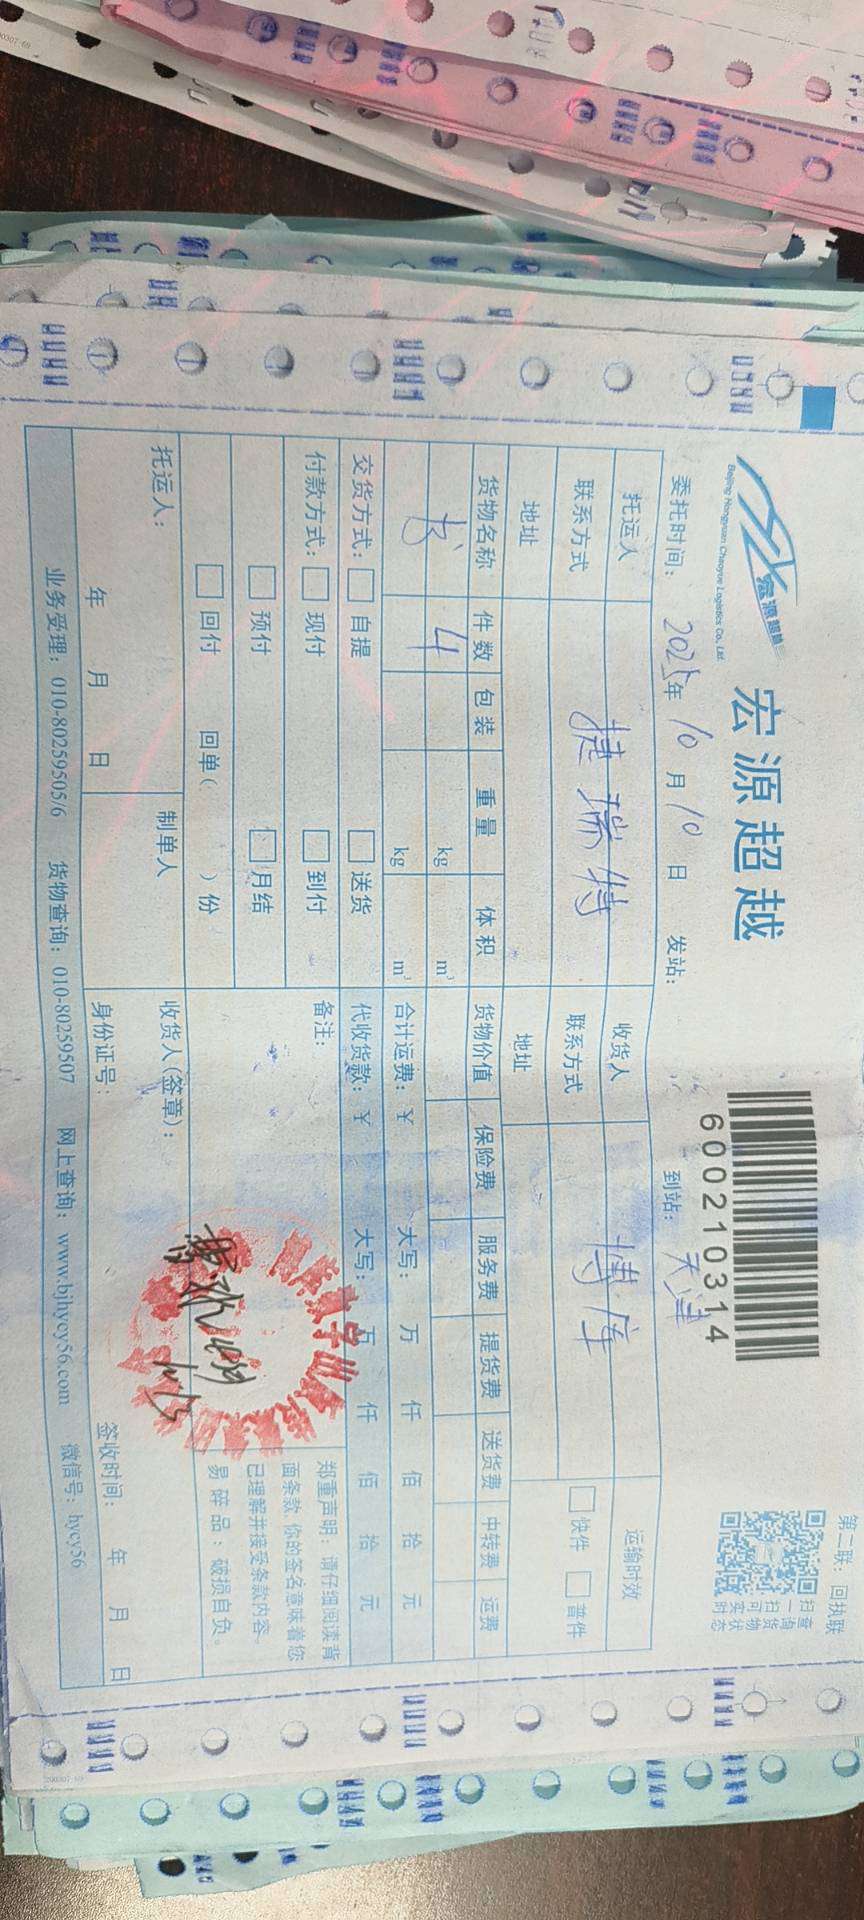 宏源超越
Beijing Hongyuan Chaoyue Logistics Co., Ltd.
宏源超越
6000210314
第二联：回执联
扫一扫
查询货物
可实时状态
委托时间：2025年10月10日 发站： 到站：天津
托运人 捷瑞特 收货人 博库 运输时效
联系方式 联系方式 快件 普件
地址 地址
货物名称 件数 包装 重量 体积 货物价值 保险费 服务费 提货费 送货费 中转费 运费
书 4 kg m³
kg m³ 合计运费：¥ 大写： 万 仟 佰 拾 元
交货方式： 自提 送货 代收货款：¥ 大写： 万 仟 佰 拾 元
付款方式： 现付 到付 备注：
预付 月结
回付 回单( )份
郑重声明：请仔细阅读背
面条款，你的签名意味着您
已理解并接受条款内容。
易碎品：破损自负。
托运人： 制单人 收货人(签章)：
年 月 日 身份证号： 签收时间： 年 月 日
业务受理：010-80259505/6 货物查询：010-80259507 网上查询：www.bjhycy56.com 微信号：hycy56